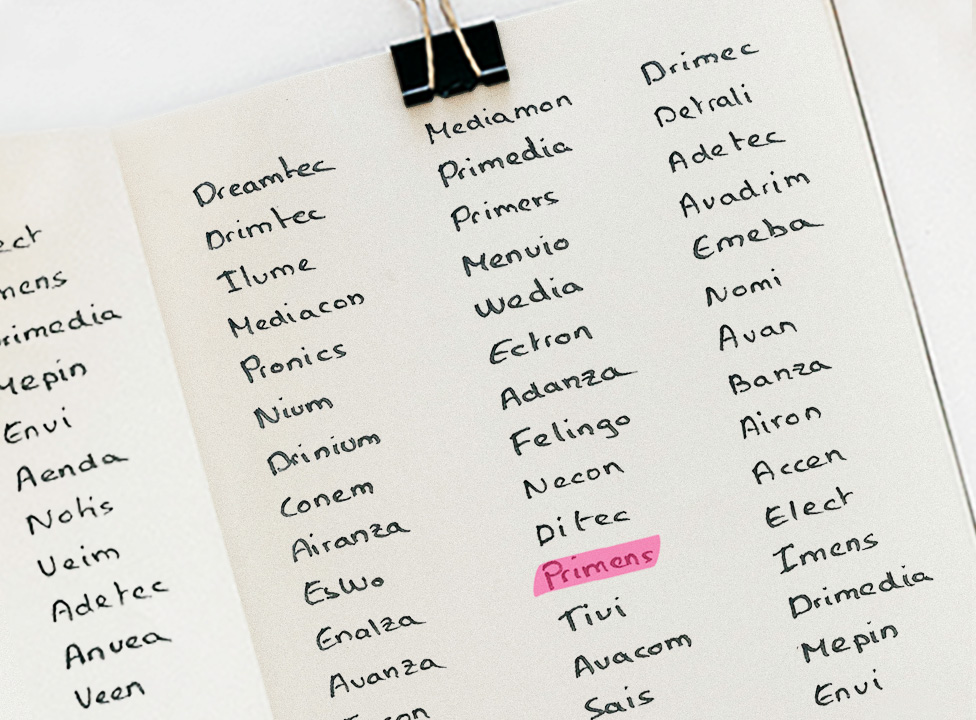 Mepin
Envi
Aenda
Notis
Veim
Adetec
Anvea
Veen
Dreamtec
Drimtec
Ilume
Mediacon
Pronics
Nium
Drinium
Conem
Airanza
Eswo
Enalza
Avanza
Mediamon
Primedia
Primers
Menvio
Wedia
Ectron
Adanza
Felingo
Necon
Ditec
Primens
Tivi
Avacom
Sais
Drimec
Detrali
Adetec
Avadrim
Emeba
Nomi
Avan
Banza
Airon
Accen
Elect
Imens
Drimedia
Mepin
Envi